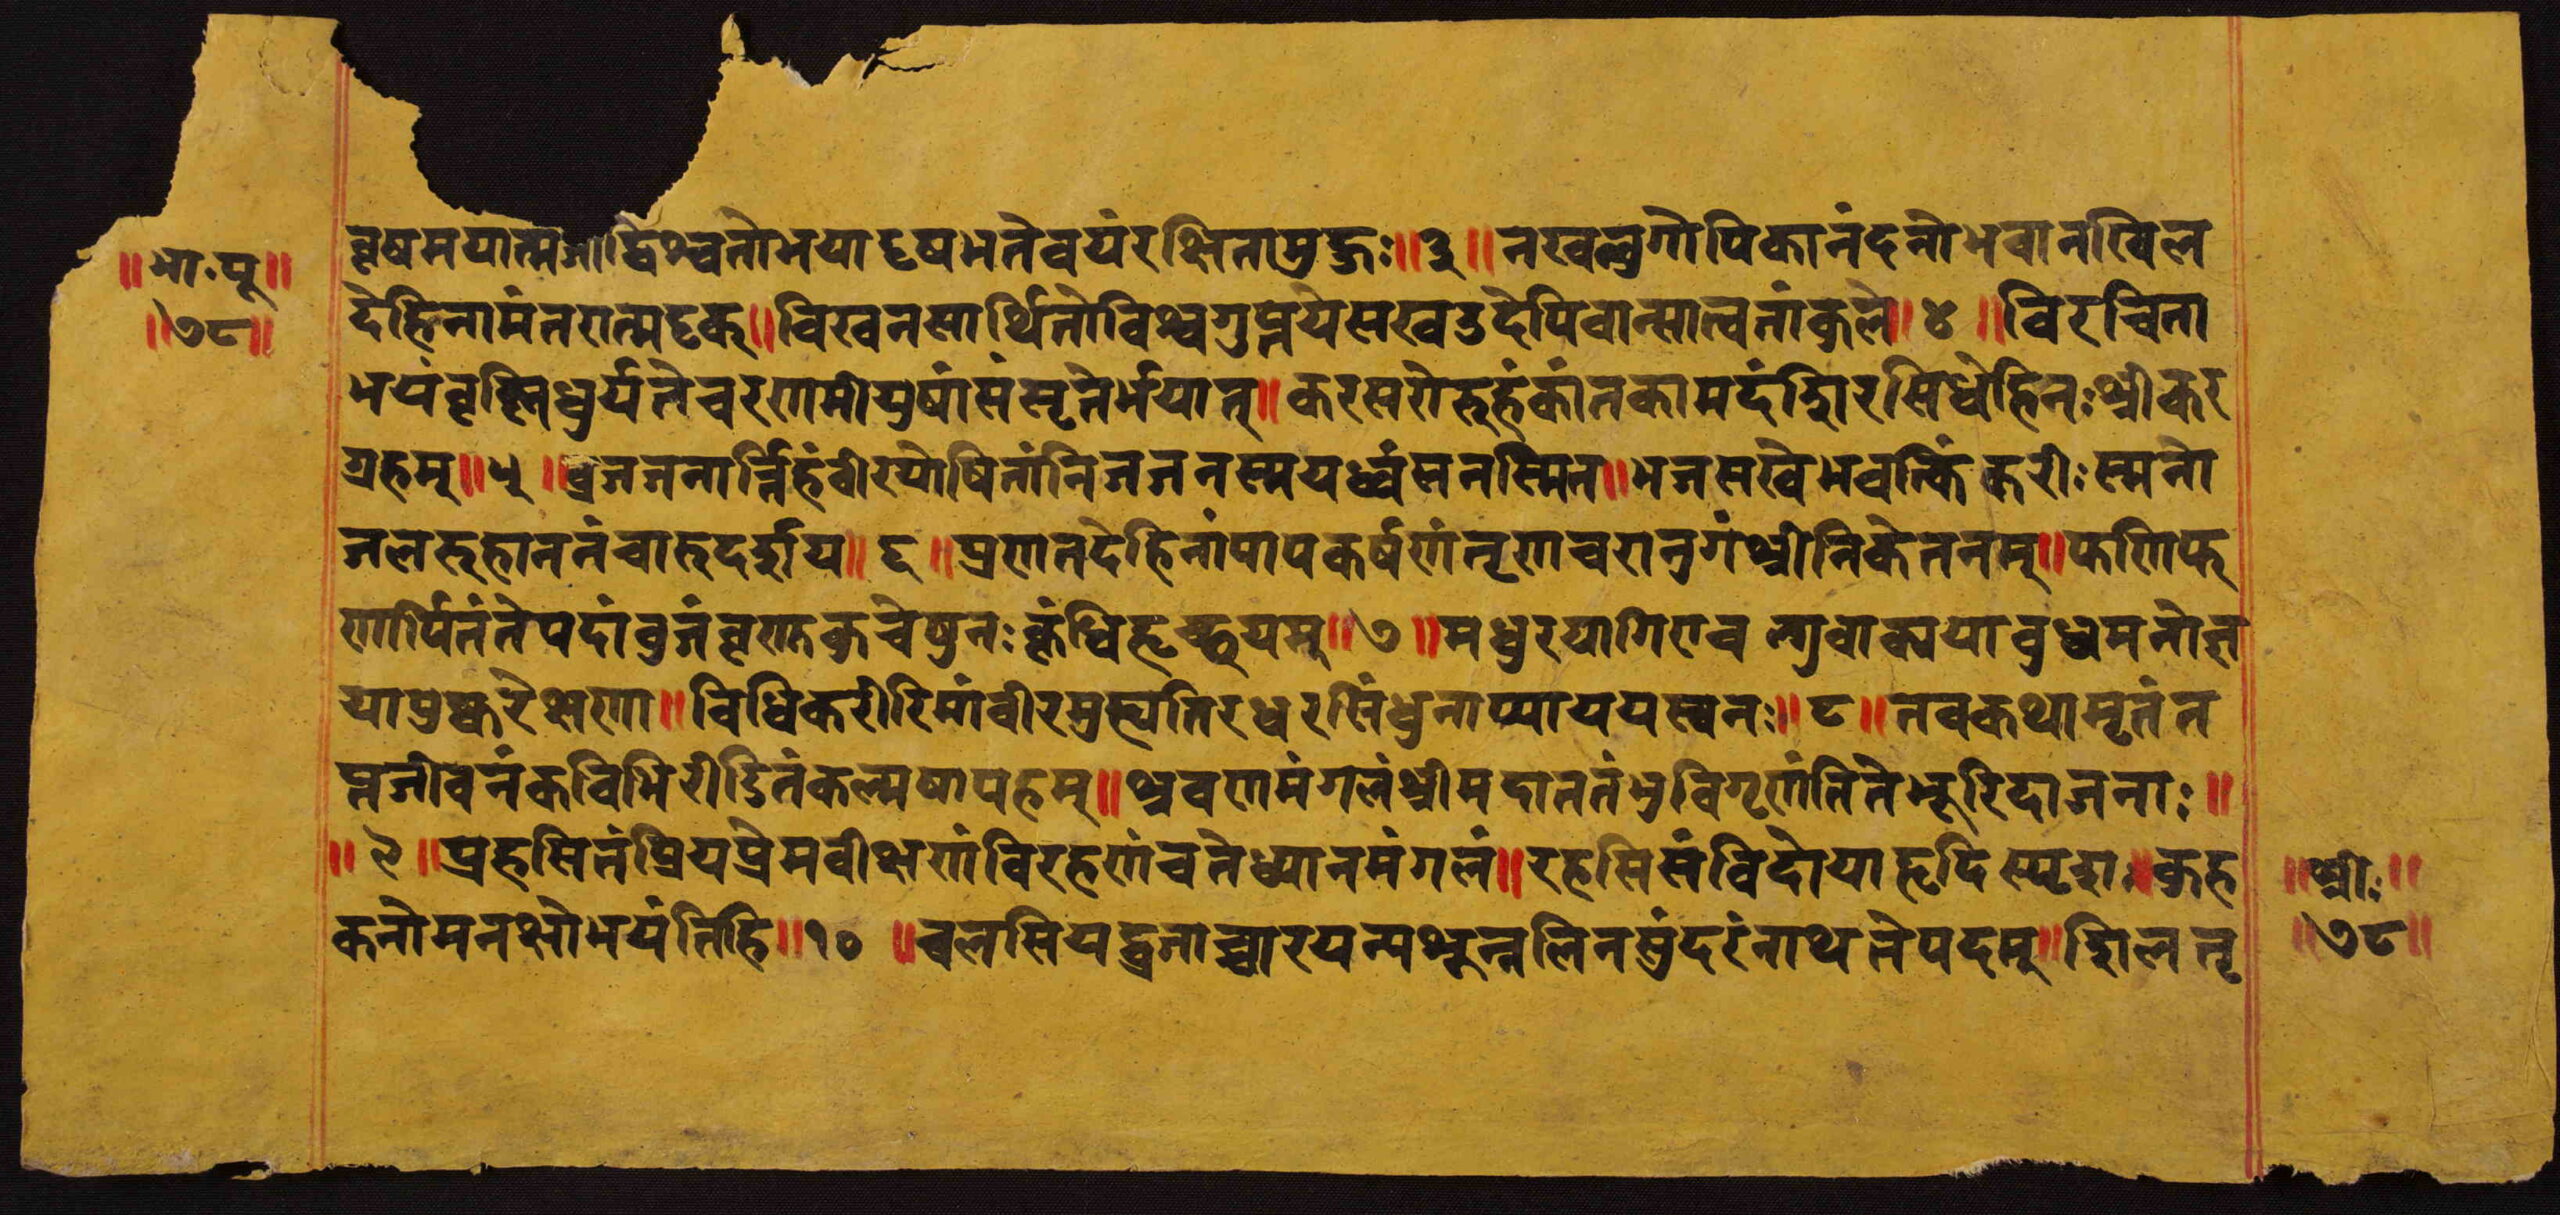 ॥भा.पू॥
॥७८॥
वृषमयात्मजाद्विश्वतोभयादृषभतेवयंरक्षितामुहुः॥३॥नखलुगोपिकानंदनोभवानखिल
देहिनामंतरात्मदृक्॥विखनसार्थितोविश्वगुप्तयेसखउदेयिवान्सात्वतांकुले॥४॥विरचिता
भयंवृष्णिधुर्यतेचरणमीयुषांसंसृतेर्भयात्॥करसरोरुहंकांतकामदंशिरसिधेहिनःश्रीकर
ग्रहम्॥५॥व्रजजनार्त्तिहंवीरयोषितांनिजजनस्मयध्वंसनस्मित॥भजसखेभवत्किंकरीःस्मनो
जलरुहाननंचारुदर्शय॥६॥प्रणतदेहिनांपापकर्षणंतृणचरानुगंश्रीनिकेतनम्॥फणिफ
णार्पितंतेपदांबुजंकृणुकुचेषुनःकृंधिहृच्छयम्॥७॥मधुरयागिरावल्गुवाक्ययाबुधमनोज्ञ
यापुष्करेक्षण॥विधिकरीरिमांवीरमुह्यतिरधरसिंधुनाप्याययस्वनः॥८॥तवकथामृतंत
प्तजीवनंकविभिरीडितंकल्मषापहम्॥श्रवणमंगलंश्रीमदाततंभुविगृणंतितेभूरिदाजनाः॥
॥९॥प्रहसितंप्रियप्रेमवीक्षणंविरहणंचतेध्यानमंगलं॥रहसिसंविदोयाहृदिस्पृशः॥कुह
कनोमनक्षोभयंतिहि॥१०॥चलसियद्व्रजाच्चारयन्पशून्नलिनसुंदरंनाथतेपदम्॥शिलतृ
॥श्रीः॥
॥७८॥